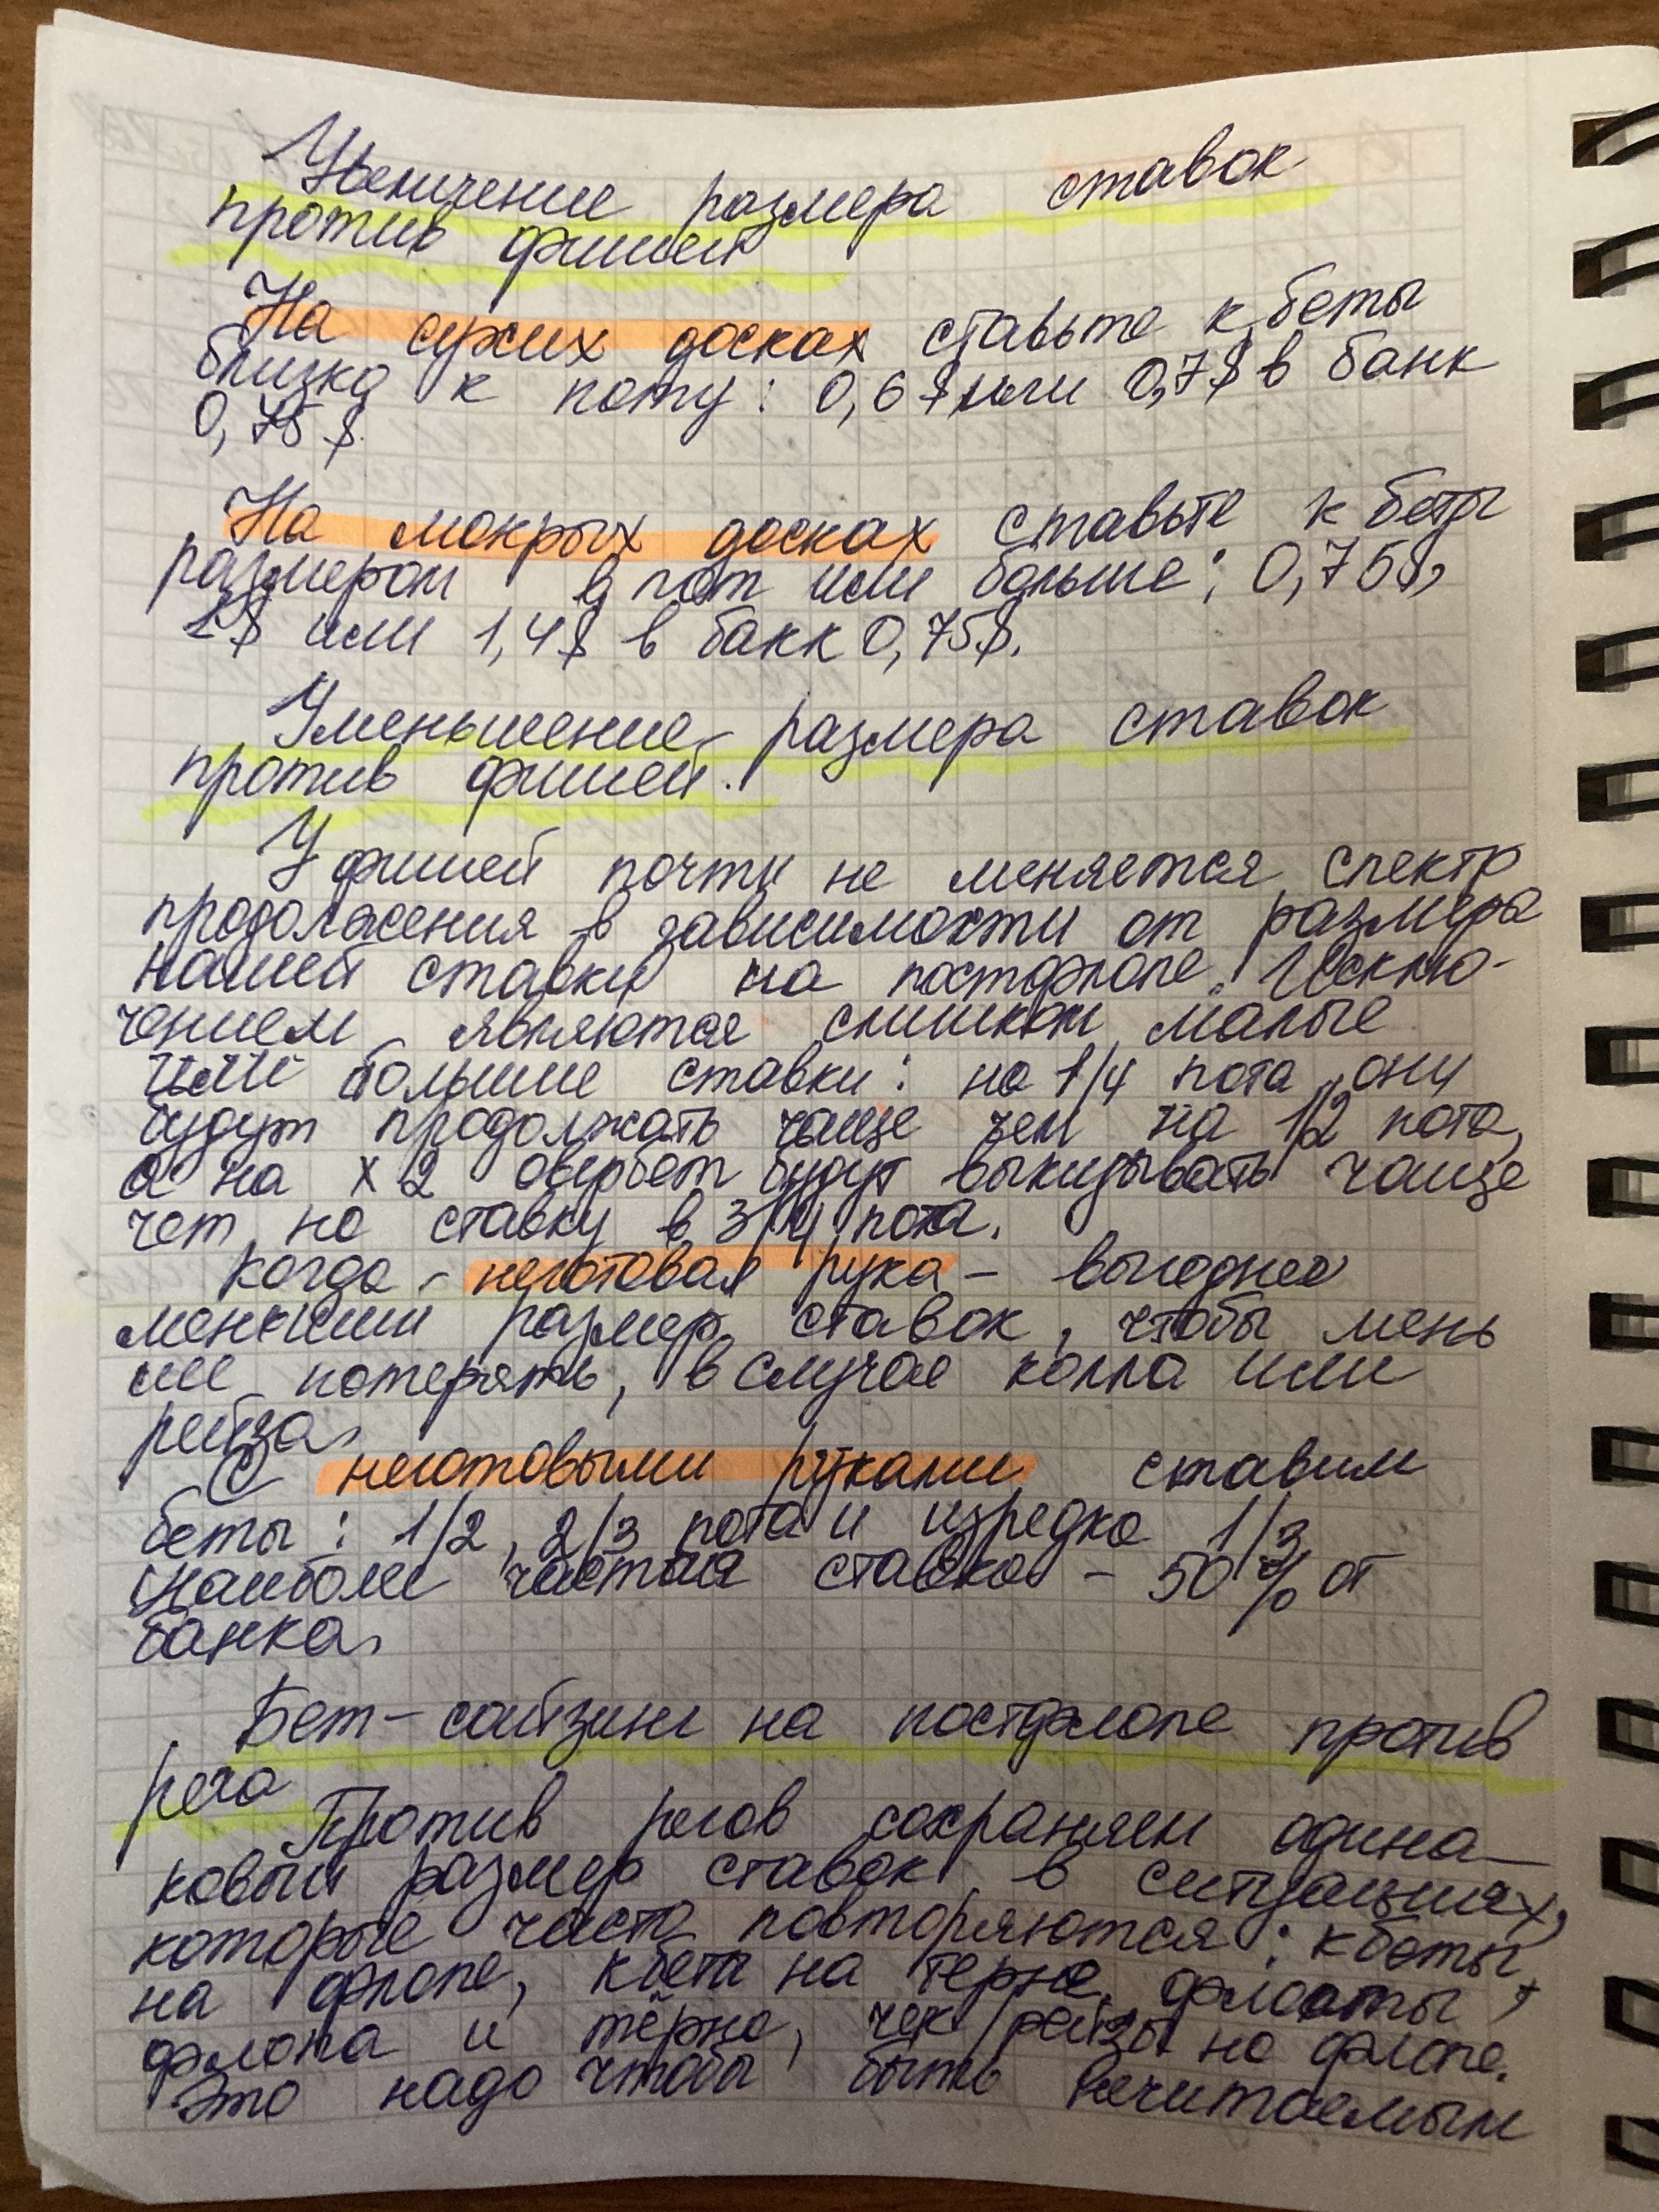 Увеличение размера ставок
против фишей
На сухих досках ставьте к беты
близко к поту: 0,6$ или 0,7$ в банк
0,75$.
На мокрых досках ставьте к беты
размером в пот или больше: 0,75$,
1$ или 1,4$ в банк 0,75$.
Уменьшение размера ставок
против фишей.
У фишей почти не меняется спектр
продолжения в зависимости от размера
нашей ставки на постфлопе. Исклю-
чением являются слишком малые
или большие ставки: на 1/4 пота они
будут продолжать чаще чем на 1/2 пота,
а на х2 овербет будут выкидывать чаще
чем на ставку в 3/4 пота.
Когда - неготовая рука - выгоднее
меньший размер ставок, чтобы мень
ше потерять, в случае колла или
рейза.
С неготовыми руками ставим
беты: 1/2, 2/3 пота и изредка 1/3
Наиболее частая ставка - 50% от
банка.
Бет-сайзинг на постфлопе против
рега
Против регов сохраняем одина-
ковый размер ставок в ситуациях,
которые часто повторяются: кбеты
на флопе, кбеты на терне, флоаты
флопа и тёрна, чек/рейзы на флопе.
Это надо чтобы быть нечитаемым